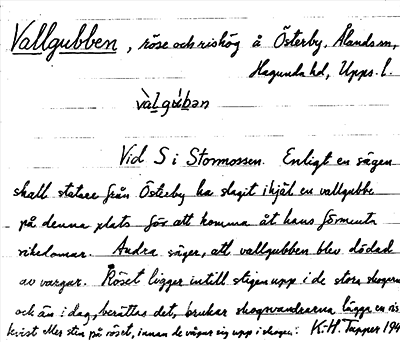 Vallgubben, röse och rishög å Österby, Ålands sn,
Hagunda hd, Upps. l.
vàlgúbən
Vid S i Stormossen. Enligt en sägen
skall statare från Österby ha slagit ihjäl en vallgubbe
på denna plats för att komma åt hans förmenta
rikedomar. Andra säger, att vallgubben blev dödad
av vargar. Röset ligger intill stigen upp i de stora skogarna
och än i dag, berättas det, brukar skogvandrarna lägga en ris
kvist eller sten på röset, innan de vågar sig upp i skogen. K-H. Tapper 194